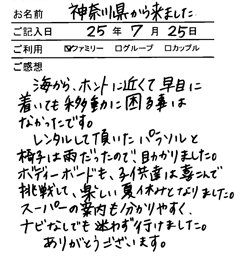 お名前 神奈川県から来ました
ご記入日 25年 7月 25日
ご利用 ☑ファミリー □グループ □カップル
ご感想
海から、ホントに近くて早目に
着いても移動に困る事は
なかったです。
レンタルして頂いたパラソルと
椅子は雨だったので、助かりました。
ボディーボードも、子供達は喜んで
挑戦して、楽しい夏休みとなりました。
スーパーの案内も分かりやすく、
ナビなしでも迷わず行けました。
ありがとうございます。